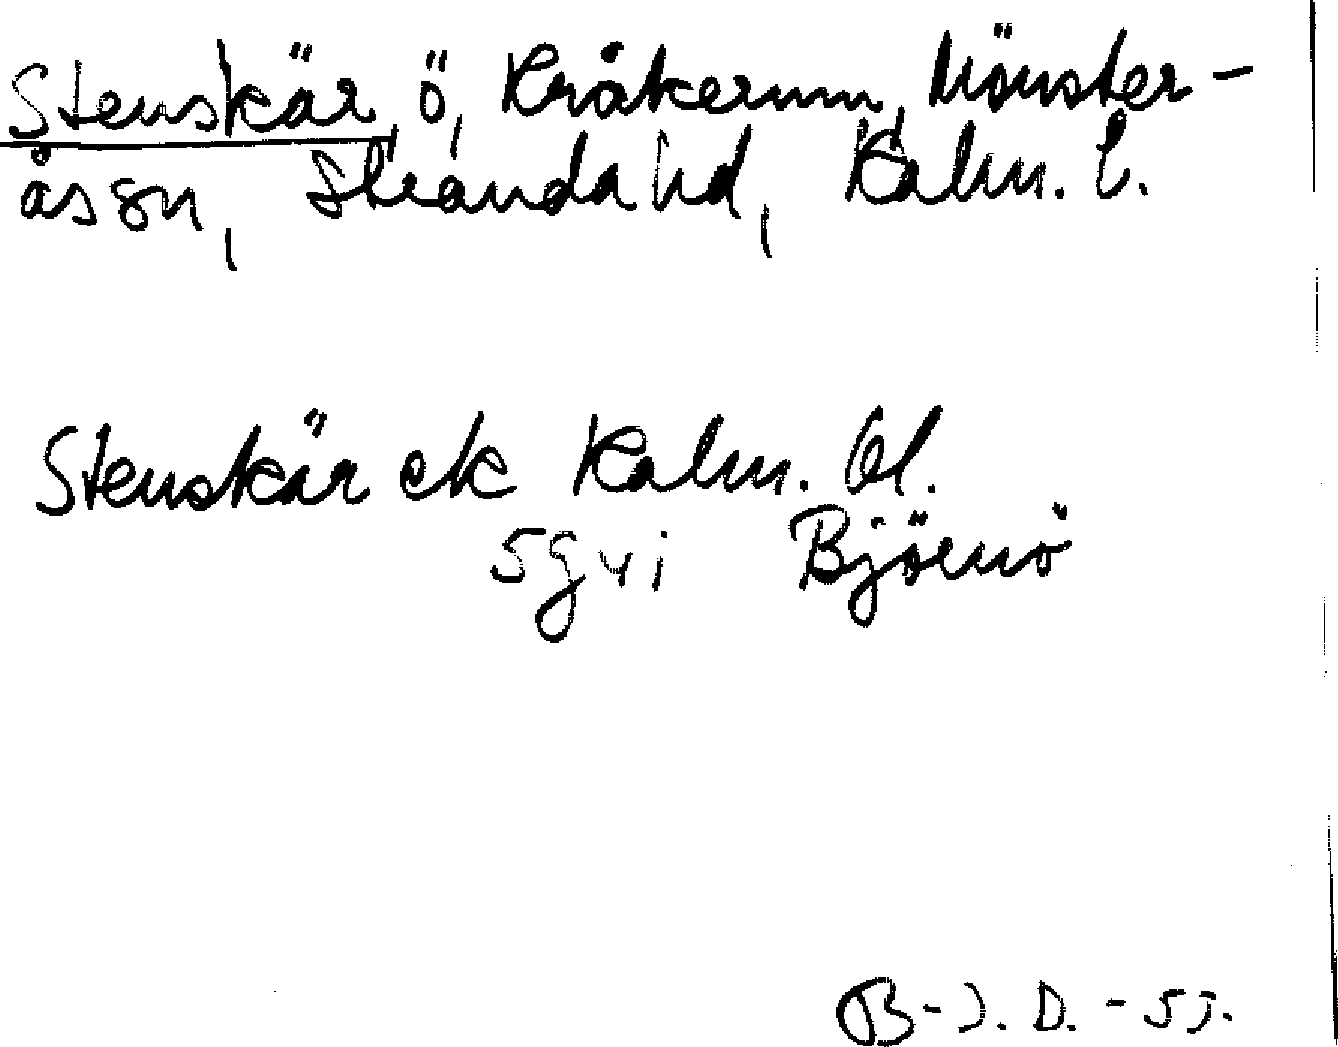 Stenskär, ö, Kråkerum, Mönster-
ås sn, Stranda hd, Kalm. l.
Stenskär ek Kalm. öl.
5g vi Björnö
B-J. D. - 55.